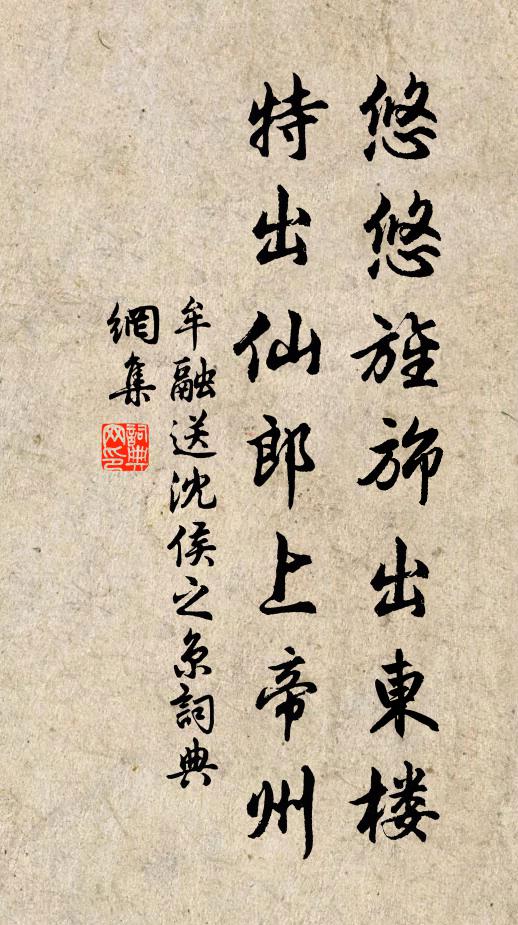 悠悠旌旆出東楼
特出仙郎上帝州
牟融送沈侯之京詞典
網集
詞典
网印